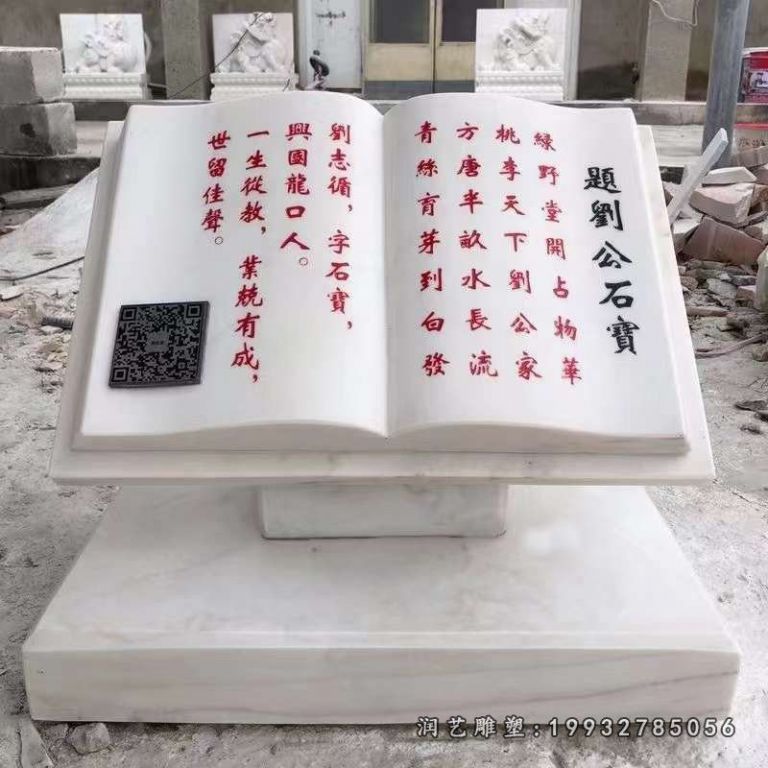 題劉公石寶
綠野堂開占物華
桃李天下劉公家
方唐半畝水長流
青絲育芽到白發
劉志循，字石寶，
興國龍口人。
一生從教，業兢有成，
世留佳聲。
润艺雕塑:19932785056